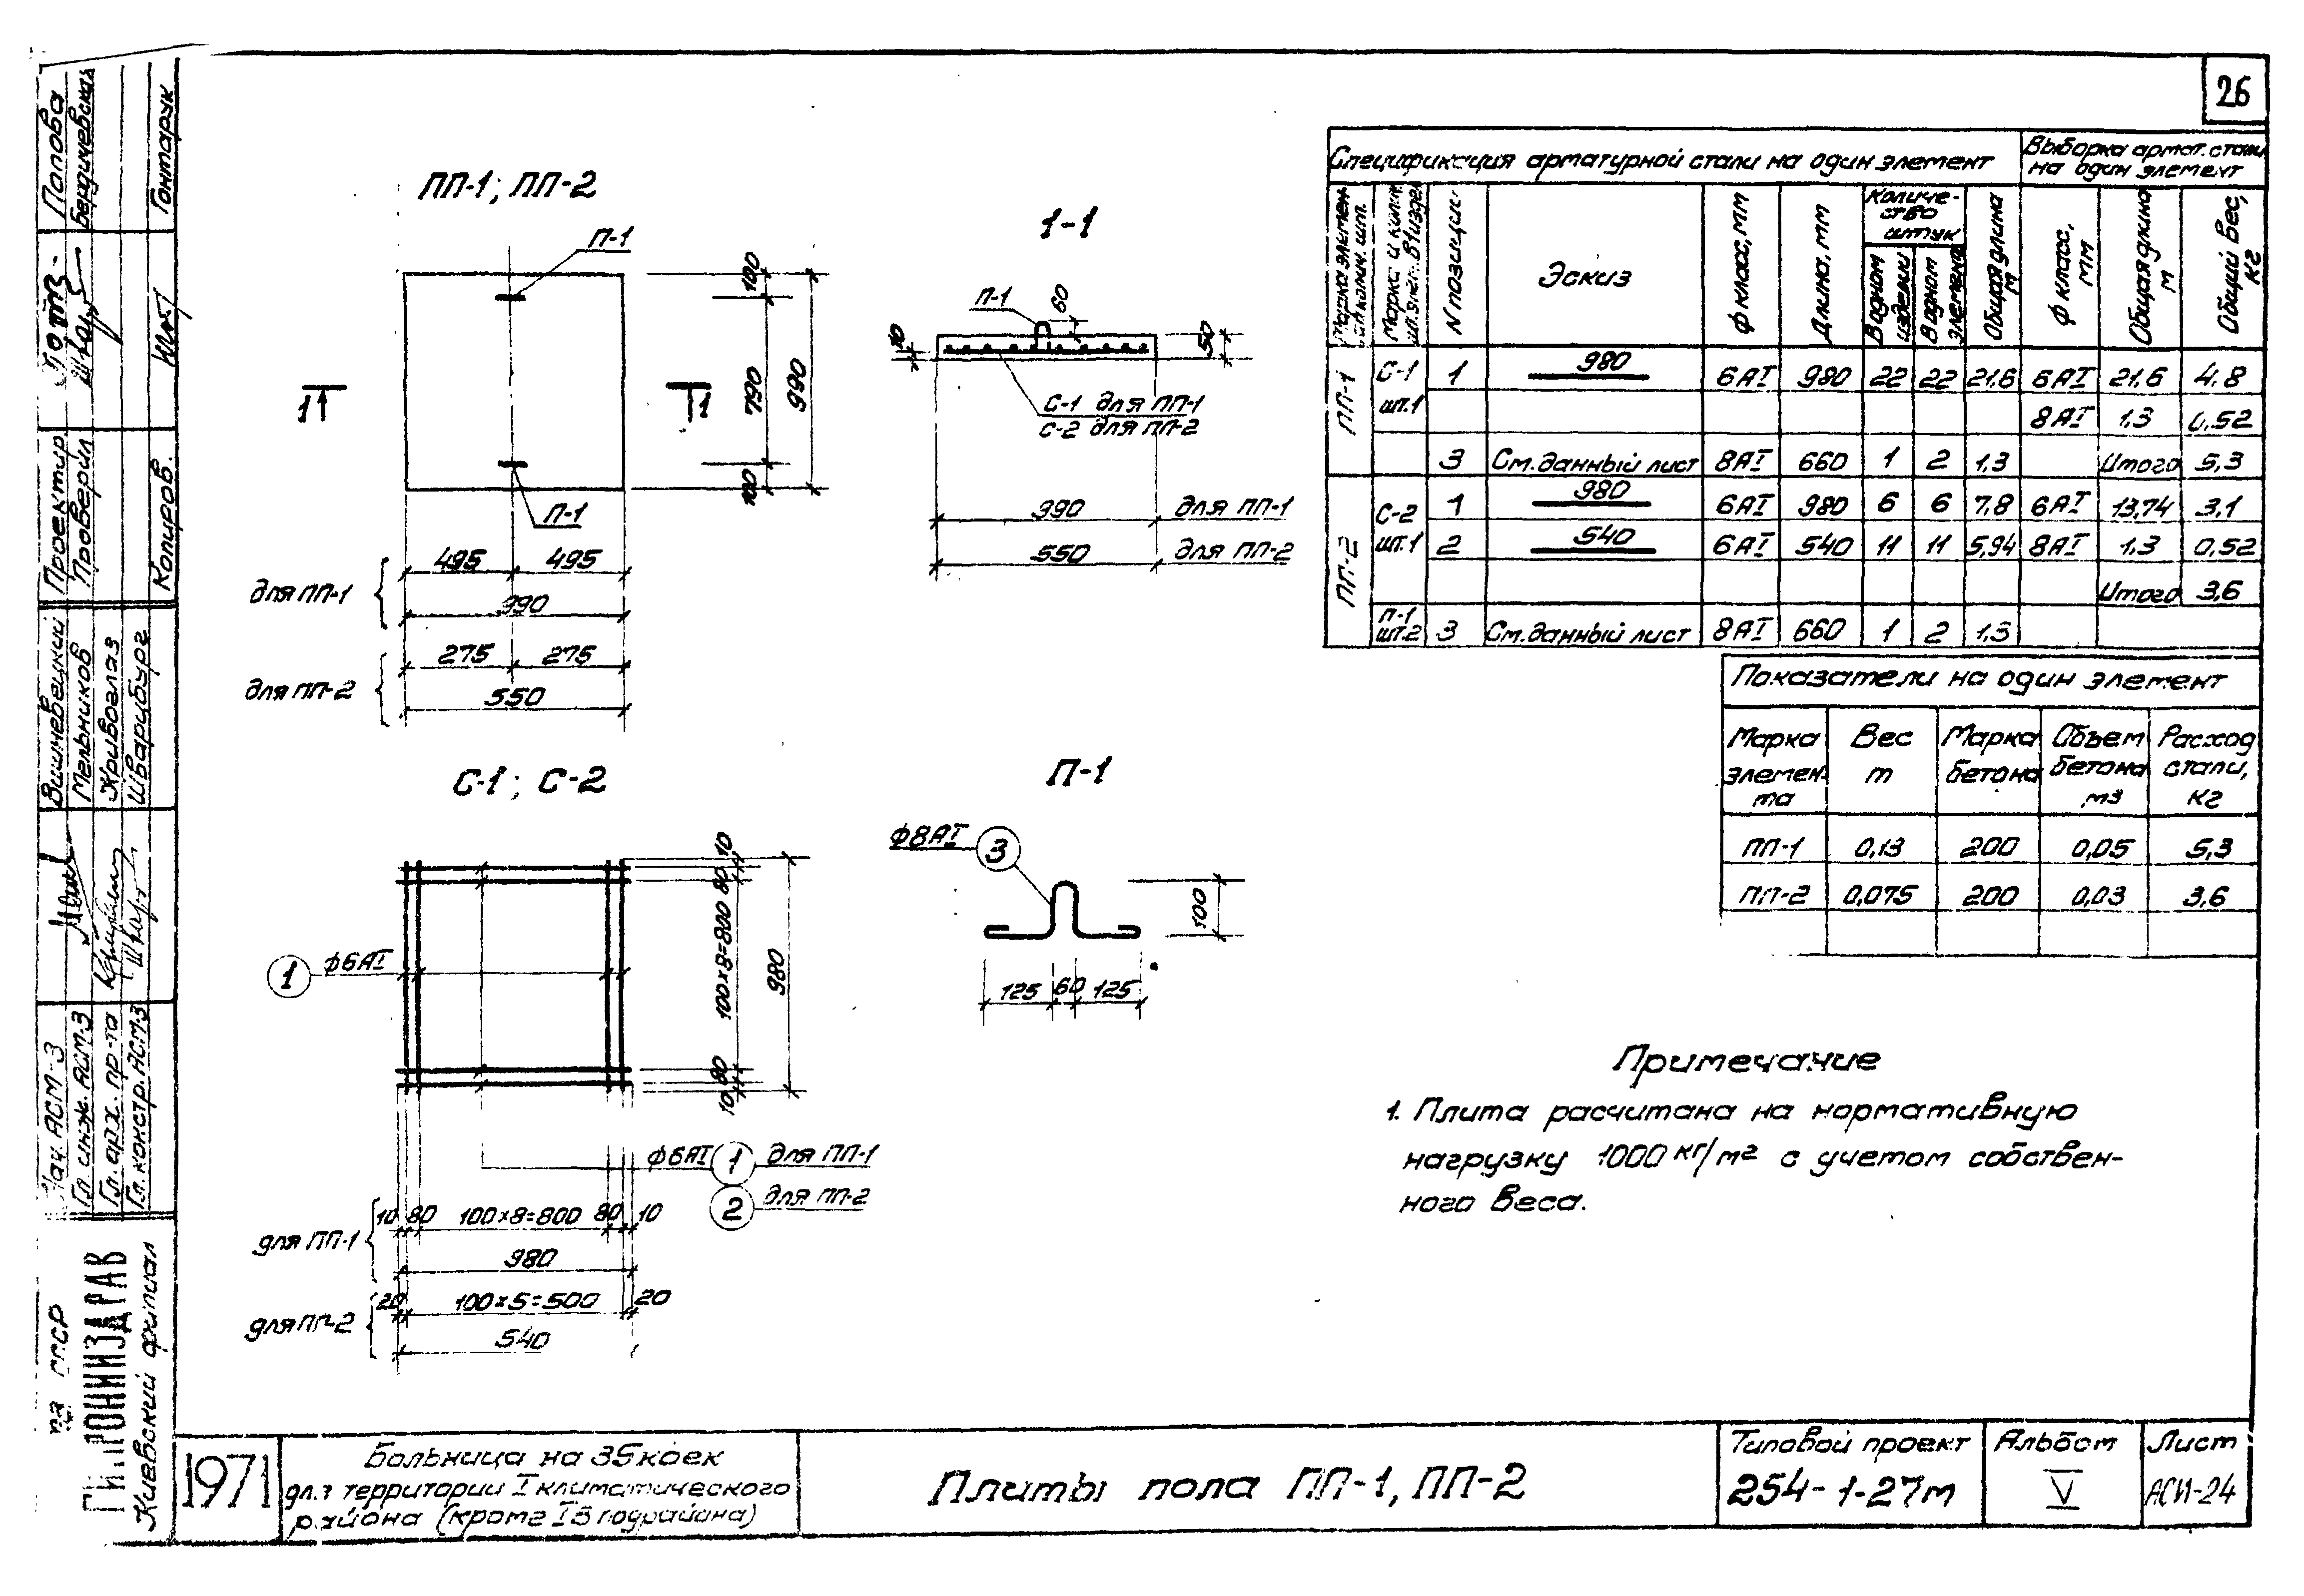 26
ПП-1; ПП-2
П-1
100
790
990
100
1
1
П-1
495
495
для ПП-1
990
275
275
для ПП-2
550
1-1
П-1
60
10
50
С-1 для ПП-1
С-2 для ПП-2
990
для ПП-1
550
для ПП-2
С-1; С-2
10
80
100×8=800
980
80
10
1
ф6АI
ф6АI 1 для ПП-1
2 для ПП-2
для ПП-1
10 80 100×8=800 80 10
980
для ПП-2
20 100×5=500 20
540
П-1
ф8АI 3
100
125 60 125
Спецификация арматурной стали на один элемент
Выборка армат. стали на один элемент
N позиции
Эскиз
ф класс, мм
Длина, мм
Количество штук
В одном изделии
В одном элементе
Общая длина м
ф класс, мм
Общая длина м
Общий вес, кг
ПП-1
С-1 1 980 6АI 980 22 22 21,6 6АI 21,6 4,8
шт.1 8АI 1,3 0,52
3 См.данный лист 8АI 660 1 2 1,3 Итого 5,3
ПП-2
С-2 1 980 6АI 980 6 6 7,8 6АI 13,74 3,1
шт.1 2 540 6АI 540 11 11 5,94 8АI 1,3 0,52
Итого 3,6
П-1
шт.2 3 См.данный лист 8АI 660 1 2 1,3
Показатели на один элемент
Марка Вес Марка Объем Расход
элемен- т бетона бетона стали,
та м3 кг
ПП-1 0,13 200 0,05 5,3
ПП-2 0,075 200 0,03 3,6
Примечание
1. Плита расчитана на нормативную
нагрузку 1000 кг/м2 с учетом собствен-
ного веса.
Попова
Бердичевская
Гонтарук
Проектир
Проверил
Копиров.
Вишневецкий
Мельников
Кривоглаз
Шварцбург
Нач АСМ-3
Гл. инж. АСМ-3
Гл. арх. пр-та
Гл. констр. АСМ-3
СССР
ГИПРОНИИЗДРАВ
Киевский филиал
1971
Больница на 35 коек
для территории I климатического
района (кроме IВ подрайона)
Плиты пола ПП-1, ПП-2
Типовой проект
254-1-27м
Альбом
V
Лист
АСИ-24